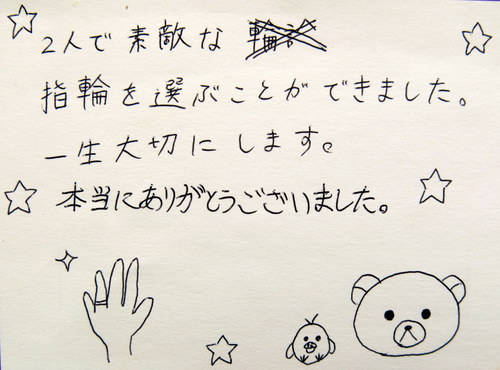 2人で素敵な
指輪を選ぶことができました。
一生大切にします。
本当にありがとうございました。